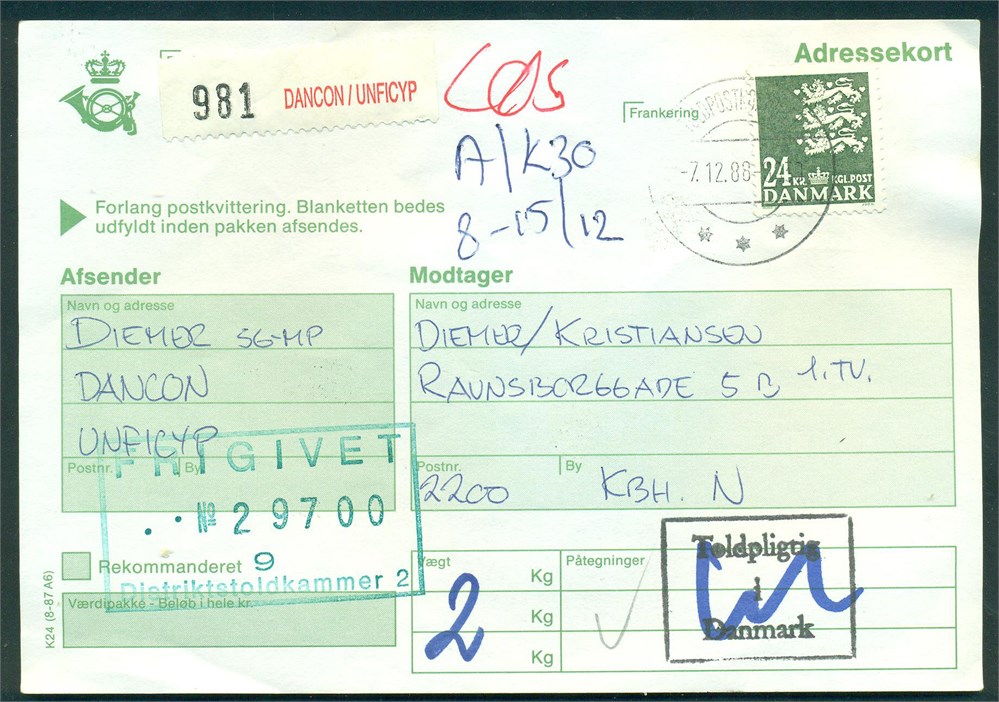 Adressekort
981 DANCON / UNFICYP
Frankering
A/K30
8-15/12
-7.12.88-
24 KR. KGL.POST
DANMARK
Forlang postkvittering. Blanketten bedes
udfyldt inden pakken afsendes.
Afsender
Navn og adresse
DIEMER SG-MP
DANCON
UNFICYP
Postnr. By
Modtager
Navn og adresse
DIEMER/KRISTIANSEN
RAVNSBORGGADE 5 B 1. TV.
Postnr. By
2200 KBH. N
FRIGIVET
№ 29700
9
Distriktstoldkammer 2
Rekommanderet
Værdipakke - Beløb i hele kr.
Vægt
Kg
Kg
Kg
2
Påtegninger
Toldpligtig
i
Danmark
K24 (8-87 A6)